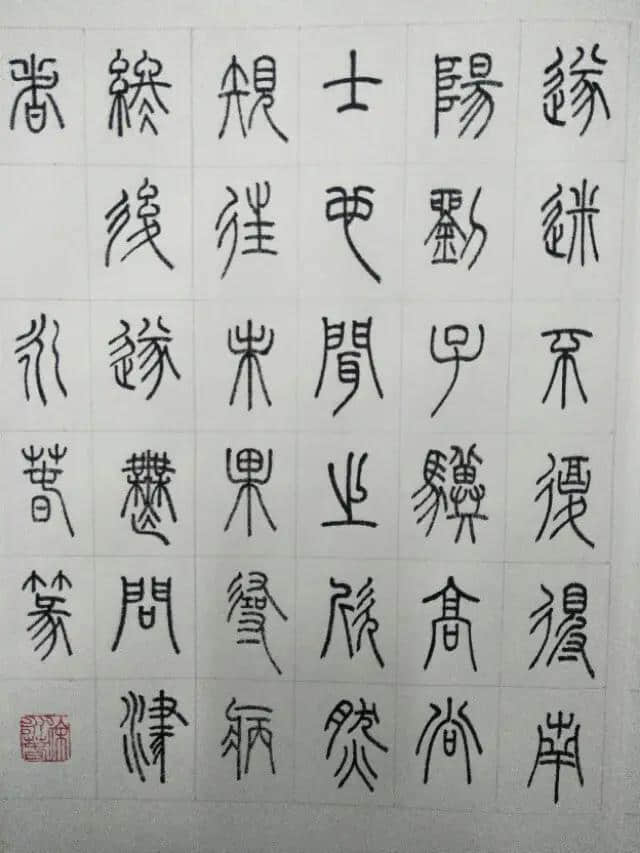 遂迷不復得南
陽劉子驥高尚
士也聞之欣然
規往未果尋病
終後遂無問津
者 永春篆